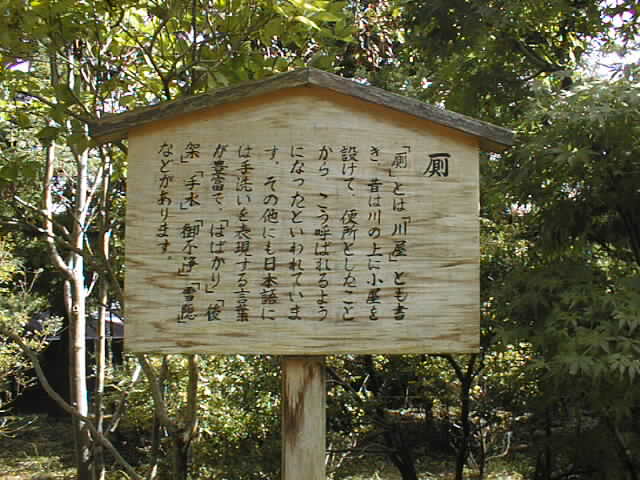 厠
「厠」とは「川屋」とも書
き、昔は川の上に小屋を
設けて、便所としたこと
から、こう呼ばれるよう
になったといわれていま
す。その他にも日本語に
は手洗いを表現する言葉
が豊富で、「はばかり」「後
架」「手水」「御不浄」「雪隠」
などがあります。